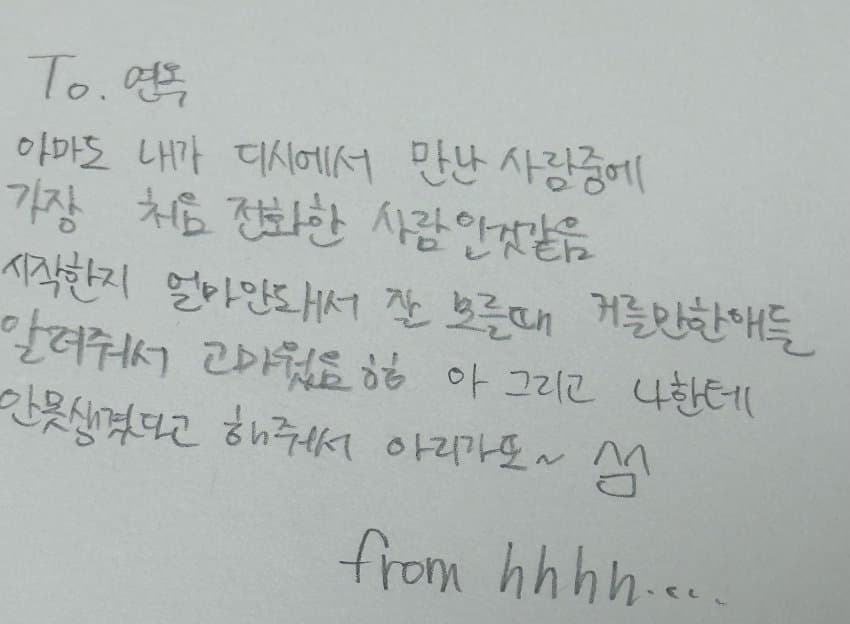 To. 연옥
아마도 내가 디시에서 만난 사람중에
가장 처음 전화한 사람인것같음
시작한지 얼마안돼서 잘 모를때 거를만한애들
알려줘서 고마웠음 ㅎㅎ 아 그리고 나한테
안못생겼다고 해줘서 아리가또~
from hhhh.....